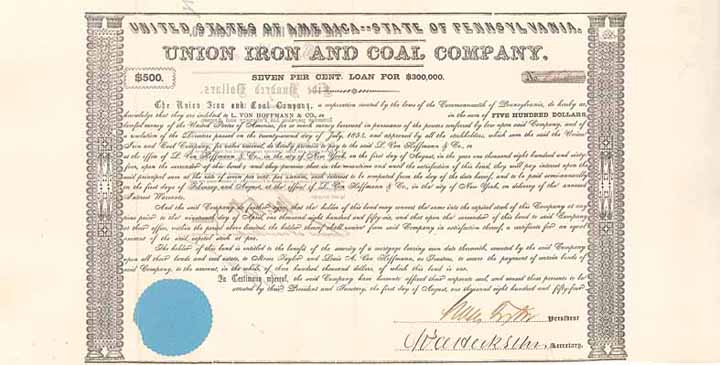 UNITED STATES OF AMERICA--STATE OF PENNSYLVANIA.
UNION IRON AND COAL COMPANY.
$500.
SEVEN PER CENT. LOAN FOR $300,000.
No.
The Union Iron and Coal Company, a corporation created by the laws of the Commonwealth of Pennsylvania, do hereby ac-
knowledge that they are indebted to L. VON HOFFMANN & CO., or in the sum of FIVE HUNDRED DOLLARS,
lawful money of the United States of America, for so much money borrowed in pursuance of the powers conferred by law upon said Company, and of
a resolution of the Directors passed on the twenty-second day of July, 1854, and approved by all the stockholders, which sum the said the Union
Iron and Coal Company, for value received, do hereby promise to pay to the said L. Von Hoffmann & Co., or
at the office of L. Von Hoffmann & Co., in the city of New York, on the first day of August, in the year one thousand eight hundred and sixty-
upon the surrender of this bond; and they promise that in the meantime and until the satisfaction of this bond, they will pay interest upon the
said principal sum at the rate of seven per cent. per annum, said interest to be computed from the day of the date hereof, and to be paid semi-annually
on the first days of February and August, at the office of L. Von Hoffmann & Co., in the city of New York, on delivery of the annexed
Interest Warrants.
And the said Company do further agree, that the holder of this bond may convert the same into the capital stock of this Company at any
time prior to the day of April, one thousand eight hundred and fifty-six, and that upon the surrender of this bond to said Company
at their office, within the period above limited, the holder thereof shall receive from said Company in satisfaction thereof, a certificate for an equal
amount of the said capital stock at par.
The holder of this bond is entitled to the benefit of the security of a mortgage bearing even date herewith, executed by the said Company
upon all their lands and real estate, to Moses Taylor and Louis A. Von Hoffmann, as Trustees, to secure the payment of certain bonds of
said Company, to the amount, in the whole, of three hundred thousand dollars, of which this bond is one.
In Testimony whereof, the said Company have hereunto affixed their corporate seal, and caused these presents to be
executed by their President and Secretary, the first day of August, one thousand eight hundred and fifty-four.
President
Secretary.